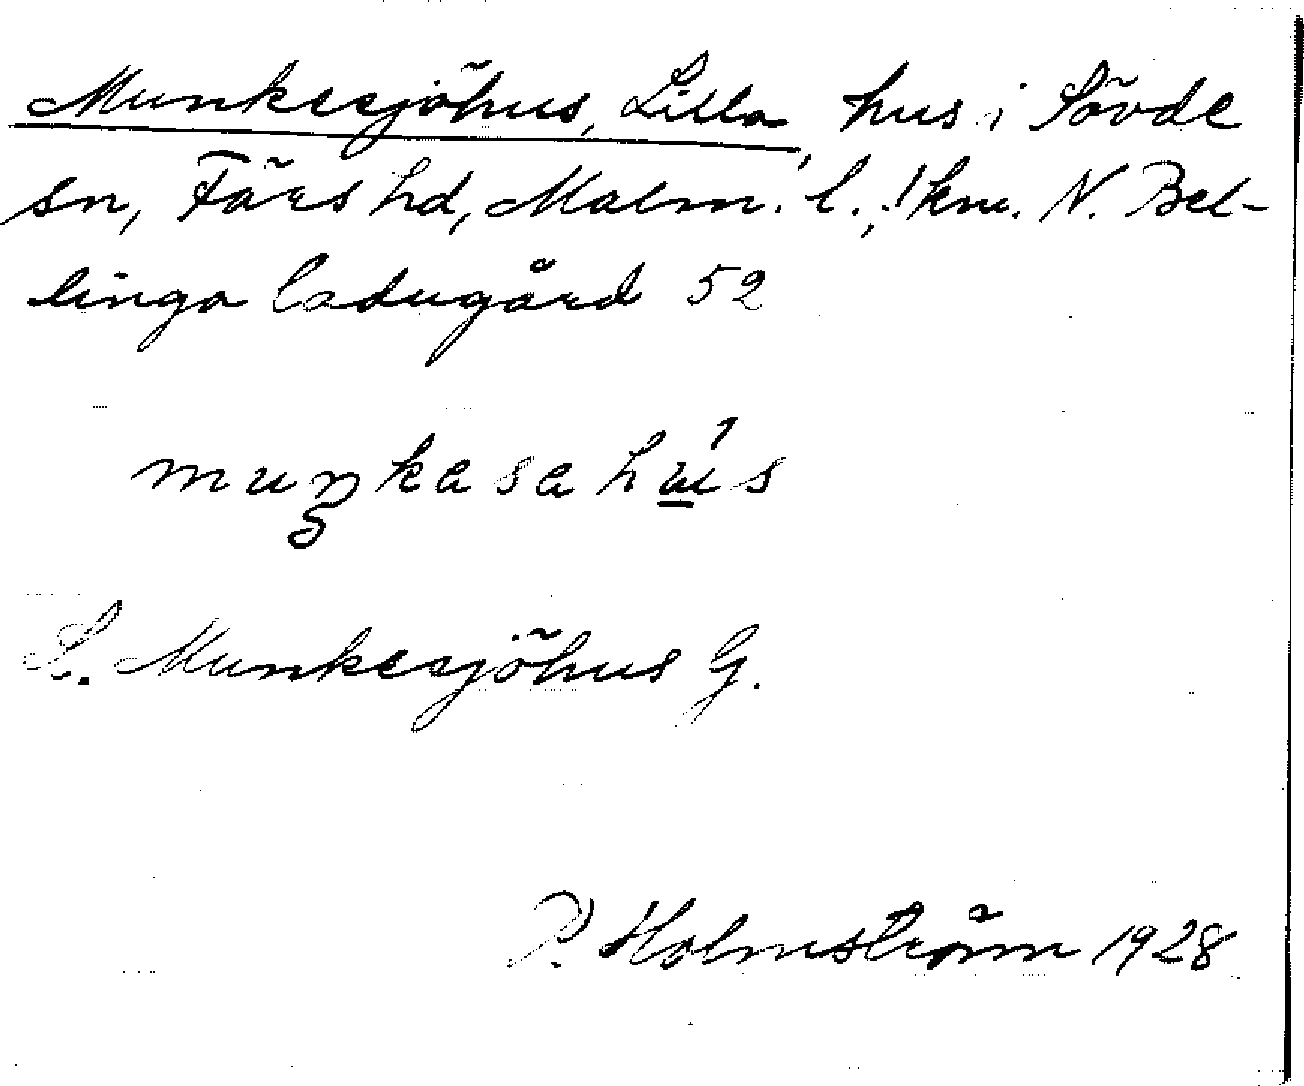 Munkesjöhus, Lilla, hus i Sövde
sn, Färs hd, Malm. l., 1 km. N. Bel-
linga ladugård 52
muŋkasahu̲s
L. Munkesjöhus G.
P. Holmström 1928